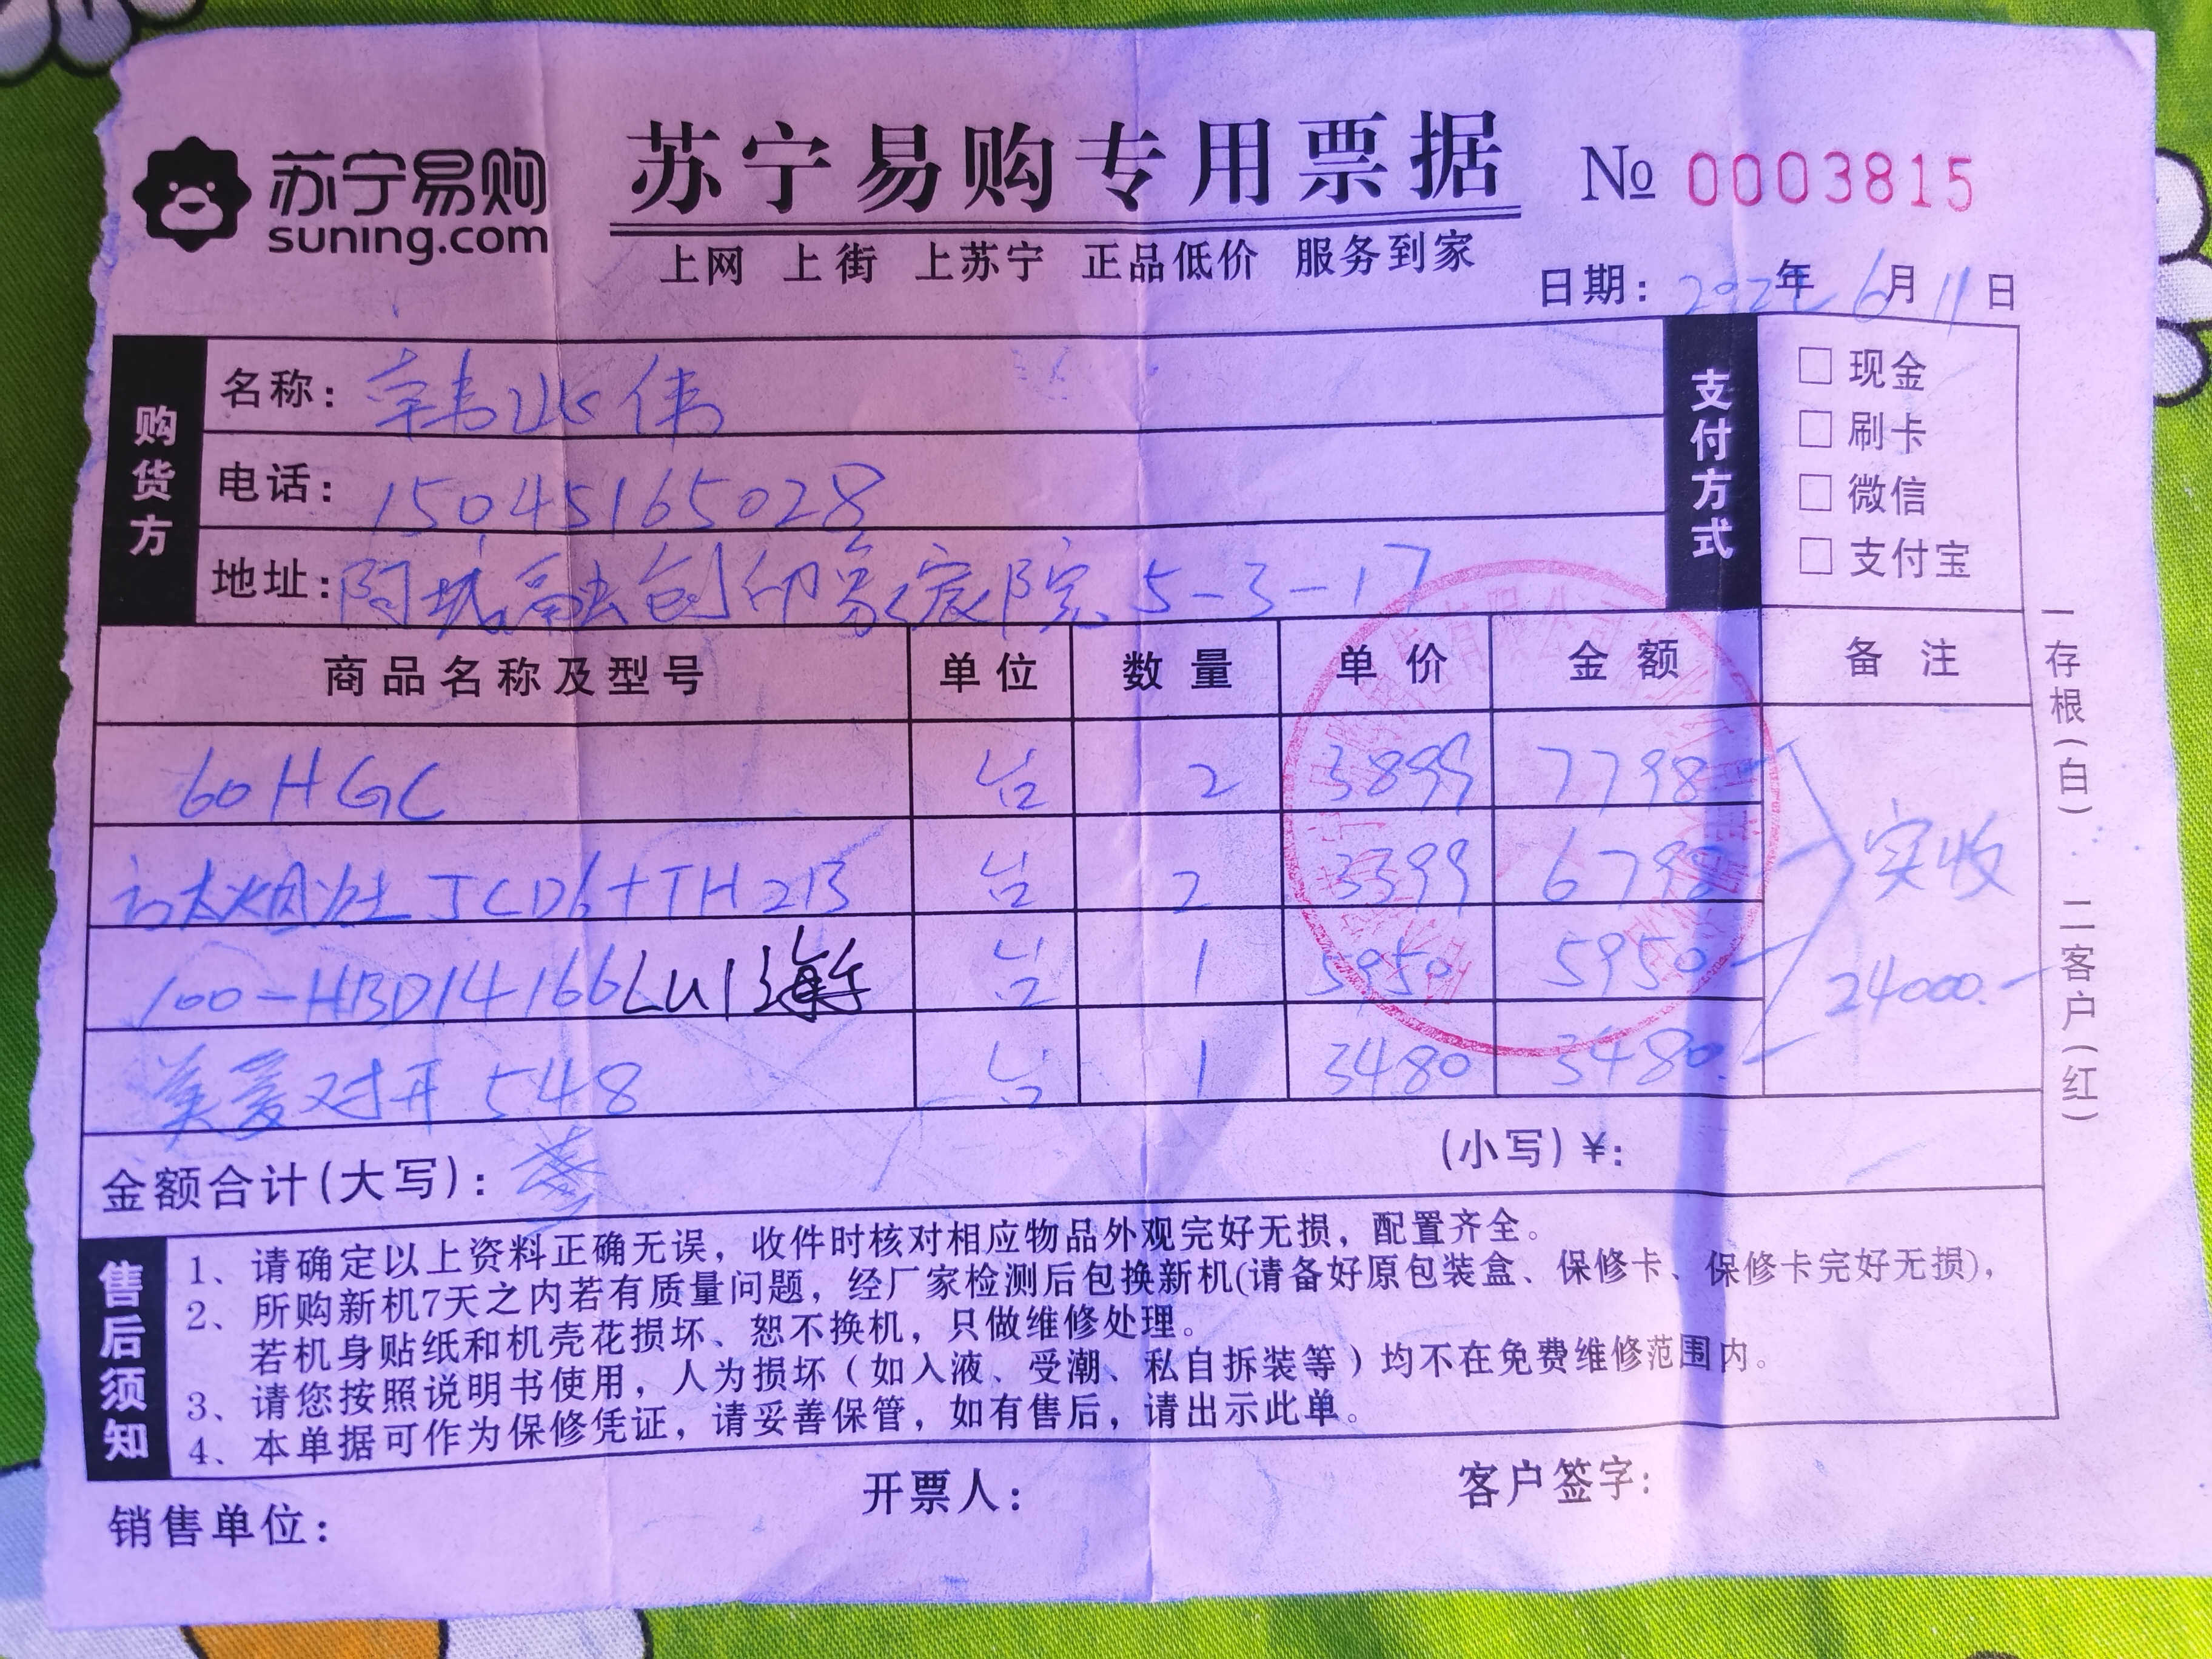 苏宁易购
suning.com
苏宁易购专用票据
№ 0003815
上网 上街 上苏宁 正品低价 服务到家
日期: 2022年6月11日
购货方
名称: 韩兆伟
电话: 15045165028
地址: 阿城融创印象宸院 5-3-17
支付方式
□ 现金
□ 刷卡
□ 微信
□ 支付宝
商品名称及型号 单位 数量 单价 金额 备注
60HGC 台 2 3899 7798
方太烟灶 JCD6+TH21B 台 2 3399 6798
100-HBD14166LU1海 台 1 5950 5950
美菱对开 548 台 1 3480 3480.-
实收
24000.-
金额合计(大写):
(小写)¥:
售后须知
1、请确定以上资料正确无误，收件时核对相应物品外观完好无损，配置齐全。
2、所购新机7天之内若有质量问题，经厂家检测后包换新机(请备好原包装盒、保修卡、保修卡完好无损)，
若机身贴纸和机壳花损坏、恕不换机，只做维修处理。
3、请您按照说明书使用，人为损坏（如入液、受潮、私自拆装等）均不在免费维修范围内。
4、本单据可作为保修凭证，请妥善保管，如有售后，请出示此单。
销售单位:
开票人:
客户签字:
一存根(白) 二客户(红)